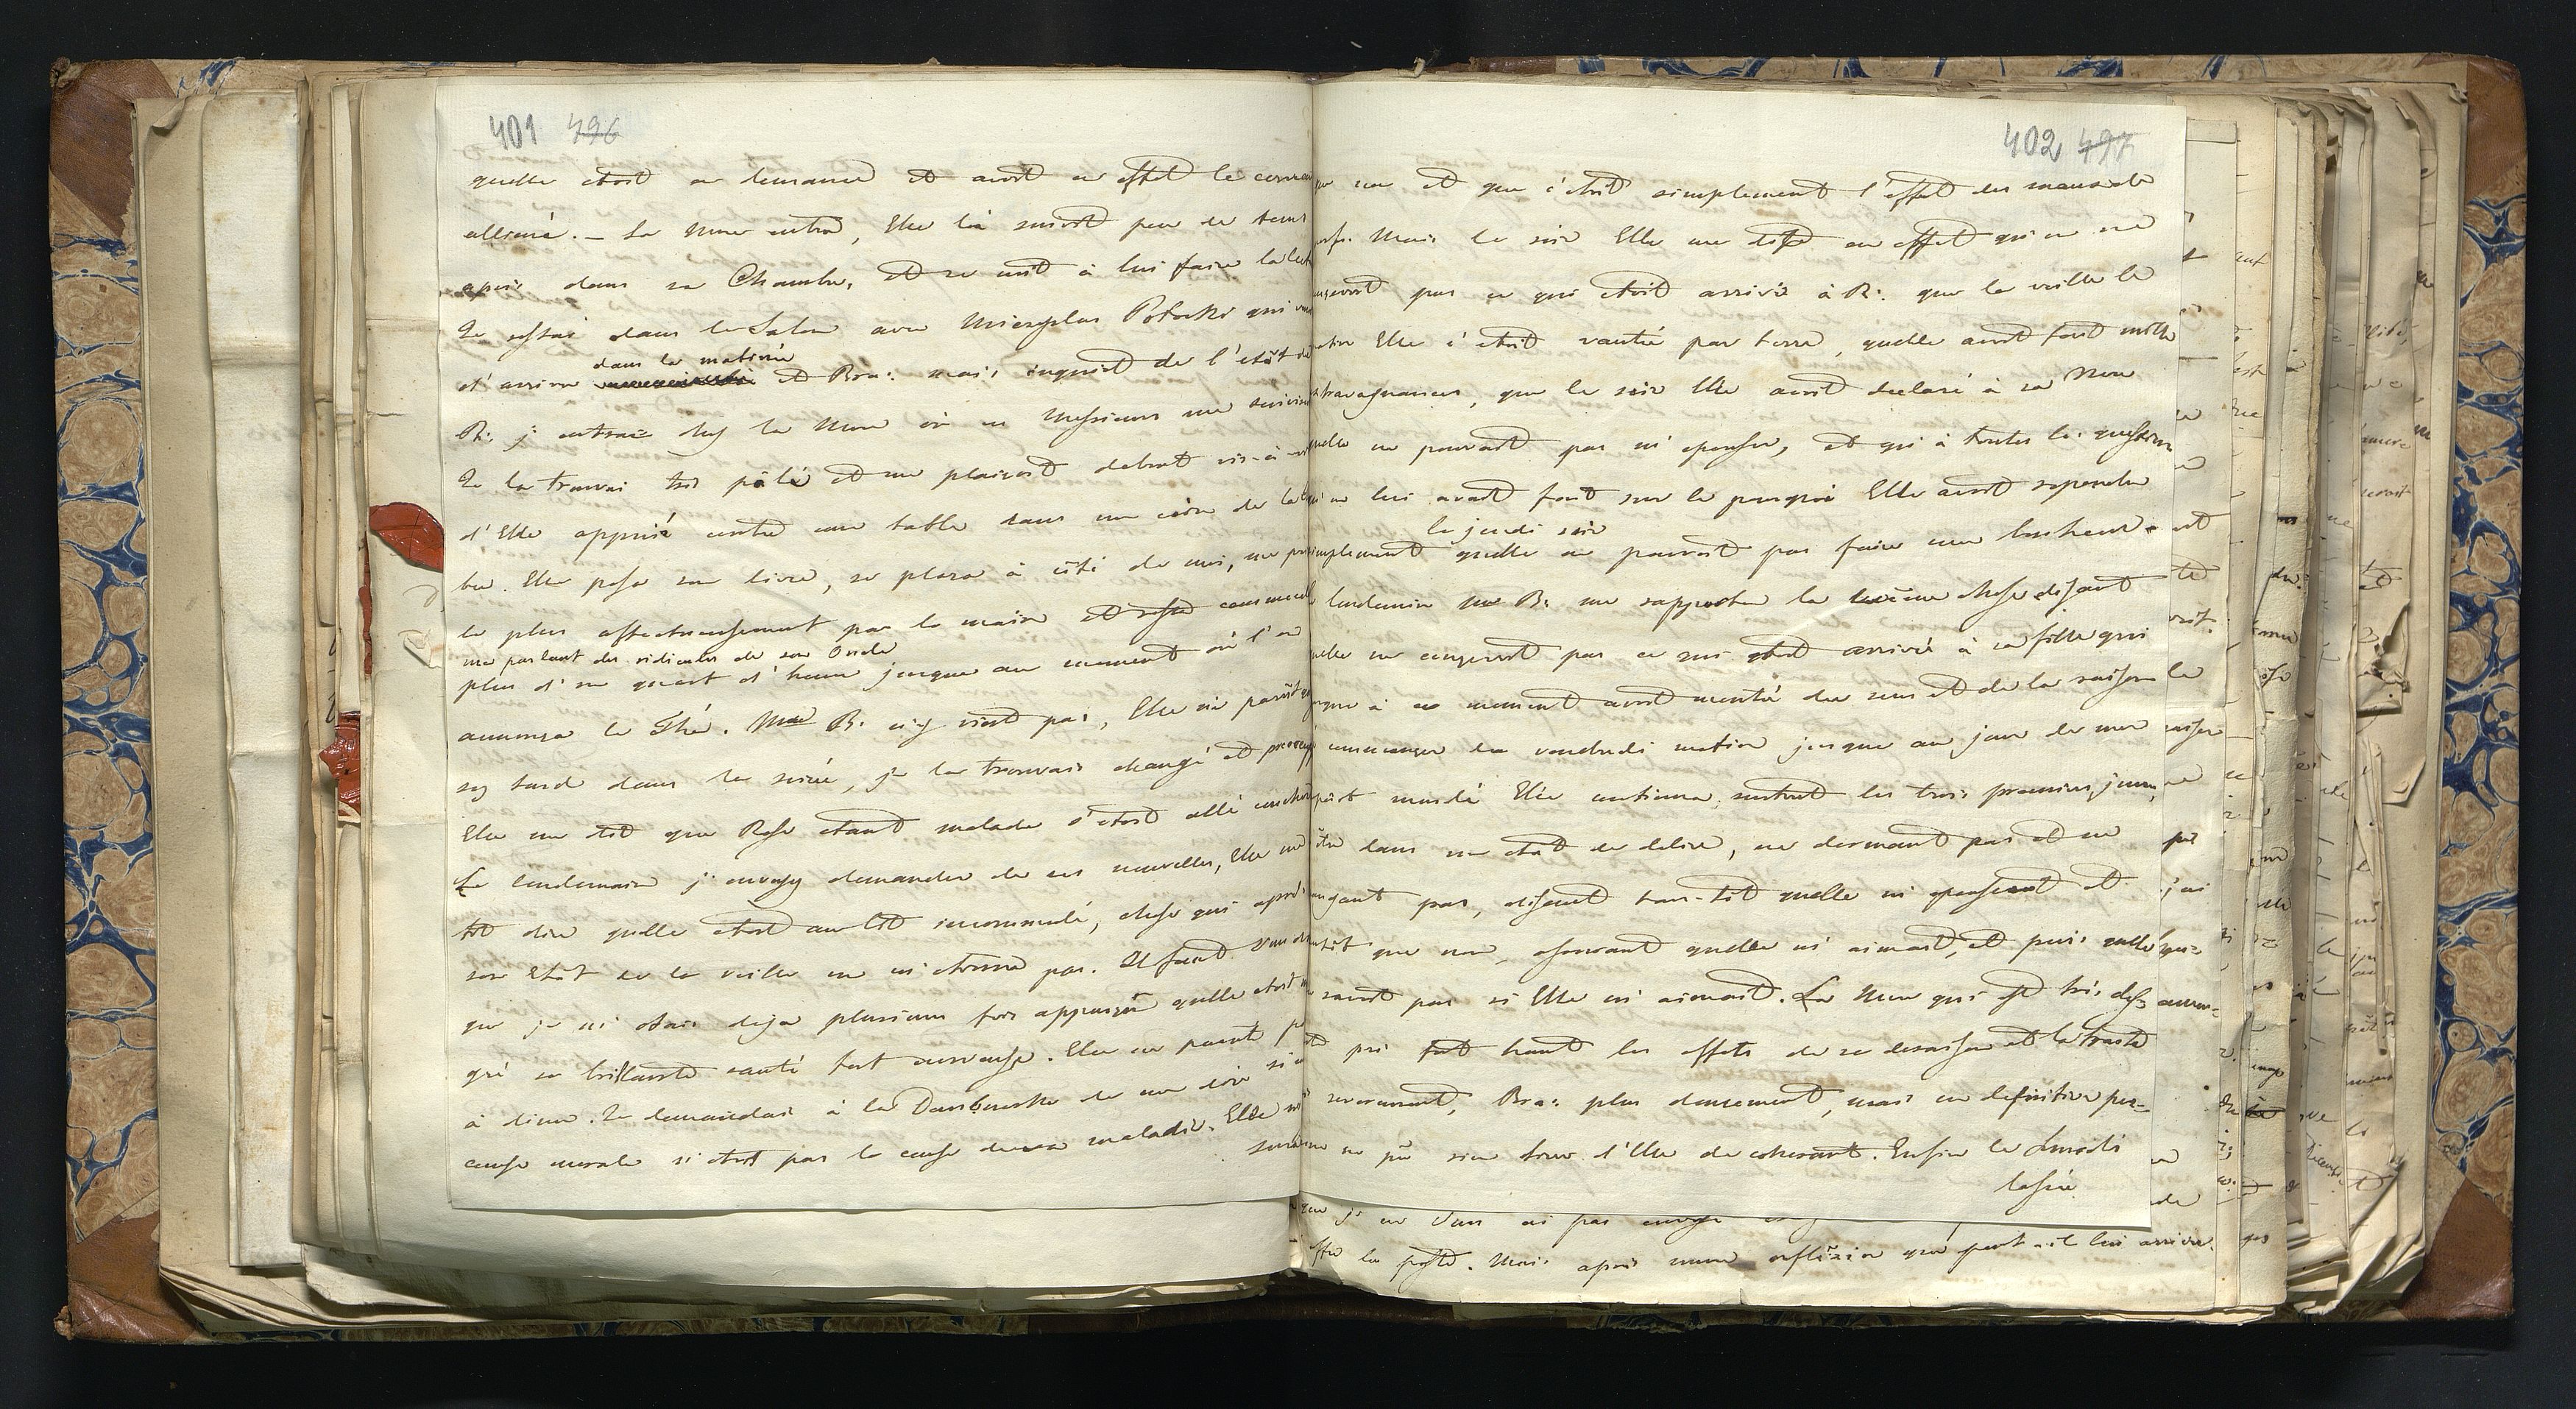 401 496
quelle etoit en demance et avoit en effet le cerveau
alliené. – La Mere entra, Elle la suivit peu de tems
apris dans sa Chambre, et se mit à lui faire la lect
Je restai dans le Salon avec Mieczyslas Potocki qui
dans la matinée
d'arriver et Bra: mais inquiet de l'etât de
R: j' entrai chez la Mere où ces Messieurs me suivirent
Je la trouvai très pâle et me plaçoit debout vis-à-vis
d'Elle appuié contre une table dans un coin de la
bre. Elle posa son livre, se plaça à côté de moi, me
le plus affectueusement par la main et resta comme
me parlant des ridicules de son Oncle
plus d'un quart d'heure jusque au moment où l'on
annonça le Thé. Mad B. n'y vint pas, Elle ne parût
sy tard dans la soirée, je la trouvais changé et preoccup
Elle me dit que Rose etant malade s'etoit allé coucher
Le lendemain j' envoyz demander de ses nouvelles, Elle me
fit dire quelle etoit au lit incommodé, chose qui apres
son Etât de la veille ne m' etonna pas. Il faut Vous dire
que je m' etois deja plusieurs fois apperçu quelle etoit
gré sa brillante santé fort nerveuse. Elle ne parut
à diner. Je demandai à la Dambowska de me dire si
cause morale n'etoit pas la cause de sa maladie. Elle
402 497
que non et que c'etoit simplement l'effet des maux de
nerfs. Mais le soir Elle me dise en effet qu'on ne
conçevoit pas ce qui etoit arrivé à R: que la veille le
matin Elle s'etoit vautré par terre, quelle avoit fait mille
extravagances, que le soir Elle avoit declaré à sa Mere
quelle ne pouvoit pas m' epouser, et qu'à toutes les questions
qu'on lui avoit fait sur le pourquoi Elle avoit repondu
le jeudi soir
simplement quelle ne pouvoit pas faire mon bonheur.
Le lendemain Mad B: me rapporta la même chose disant
quelle ne conçevoit pas ce qui etoit arrivé à sa fille qui
jusque à ce moment avoit montré du sens et de la raison
A commencer du vendredi matin jusque au jour de mon
depart mardi Elle continua, surtout les trois premiers jours,
d'être dans un etât de delire, ne dormant pas et ne
mangeant pas, disant tan-tôt quelle m' epouseroit et
tantôt que non, assurant quelle m' aimoit, et puis quelle
ne savoit pas si Elle m' aimoit. La Mere qui est très
prit fort haut les effets de sa deraison et la traita
severement, Bra: plus doucement, mais en definitive per-
sonne ne pû rien tirer d'Elle de coherant. Enfin le Lundi
que je ne Vous ai pas envoyé
la poste. Mais après mure reflexion que peut-il lui arriver